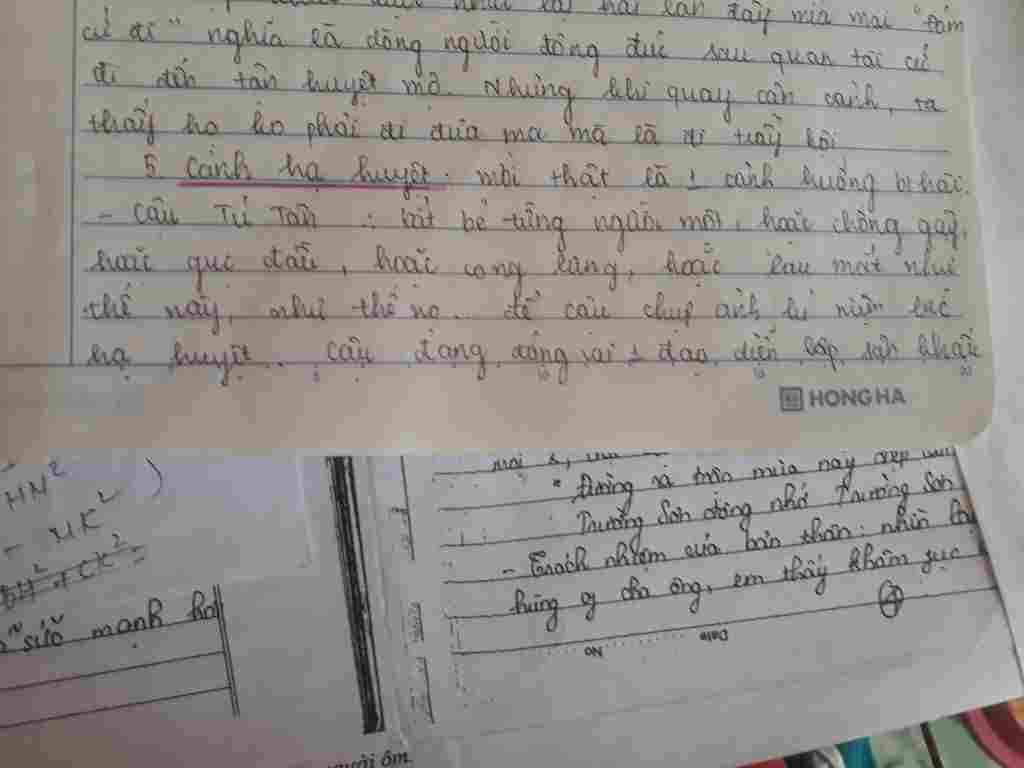 lại hai lần đầy mỉa mai "đám
cứ đi" nghĩa là dòng người đông đúc sau quan tài cứ
đi đến tận huyệt mộ. Nhưng khi quay cận cảnh, ta
thấy họ ko phải đi đưa ma mà là đi trẩy hội
5. Cảnh hạ huyệt: mới thật là 1 cảnh tượng bi hài.
- Cậu Tú Tân : bắt bẻ từng người một, hoặc chống gậy,
hoặc gục đầu, hoặc cong lưng, hoặc lau mắt như
thế này, như thế nọ... để cậu chụp ảnh kỉ niệm lúc
hạ huyệt. Cậu đang đóng vai 1 đạo diễn sân khấu
HONG HA
HN²
- UK²
)
sức mạnh
* Đường ra trận mùa này đẹp
Trường Sơn đông nhớ Trường Sơn
- Trách nhiệm của bản thân: nhìn
hùng of cha ông, em thấy khâm phục
4
Date
No
người ôm.